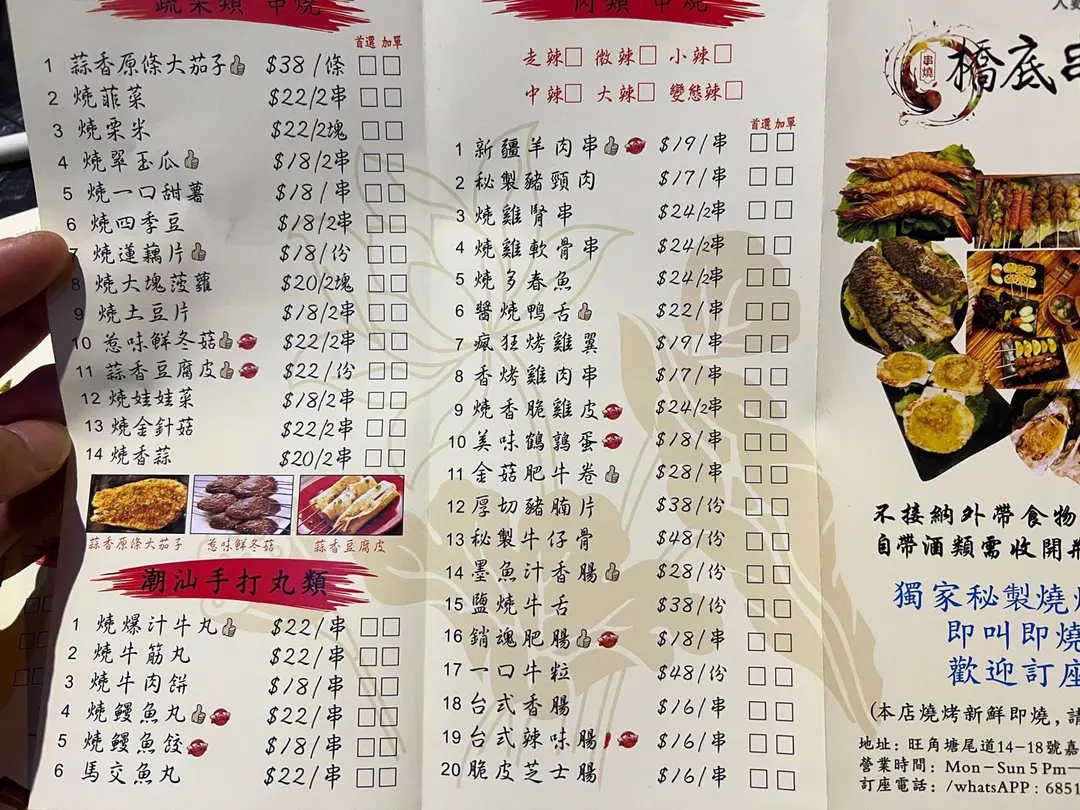 蔬菜類 串燒
首選 加單
1 蒜香原條大茄子 $38/條
2 燒菲菜 $22/2串
3 燒栗米 $22/2塊
4 燒翠玉瓜 $18/2串
5 燒一口甜薯 $18/串
6 燒四季豆 $18/2串
7 燒蓮藕片 $18/份
8 燒大塊菠蘿 $20/2塊
9 燒土豆片 $18/2串
10 惹味鮮冬菇 $22/2串
11 蒜香豆腐皮 $22/份
12 燒娃娃菜 $18/2串
13 燒金針菇 $22/2串
14 燒香蒜 $20/2串
蒜香原條大茄子 惹味鮮冬菇 蒜香豆腐皮
潮汕手打丸類
1 燒爆汁牛丸 $22/串
2 燒牛筋丸 $22/串
3 燒牛肉餅 $18/串
4 燒鰻魚丸 $22/串
5 燒鰻魚餃 $18/串
6 馬交魚丸 $22/串
肉類 串燒
走辣 微辣 小辣
中辣 大辣 變態辣
首選 加單
1 新疆羊肉串 $19/串
2 秘製豬頸肉 $17/串
3 燒雞腎串 $24/2串
4 燒雞軟骨串 $24/2串
5 燒多春魚 $24/2串
6 醬燒鴨舌 $22/串
7 瘋狂烤雞翼 $19/串
8 香烤雞肉串 $17/串
9 燒香脆雞皮 $24/2串
10 美味鶴鶉蛋 $18/串
11 金菇肥牛卷 $28/串
12 厚切豬腩片 $38/份
13 秘製牛仔骨 $48/份
14 墨魚汁香腸 $28/份
15 鹽燒牛舌 $38/份
16 銷魂肥腸 $18/串
17 一口牛粒 $48/份
18 台式香腸 $16/串
19 台式辣味腸 $16/串
20 脆皮芝士腸 $16/串
人數
串燒
橋底串
不接納外帶食物
自帶酒類需收開瓶
獨家秘製燒
即叫即燒
歡迎訂座
(本店燒烤新鮮即燒,請
地址: 旺角塘尾道14-18號嘉
營業時間: Mon-Sun 5 Pm-
訂座電話: /whatsAPP : 6851